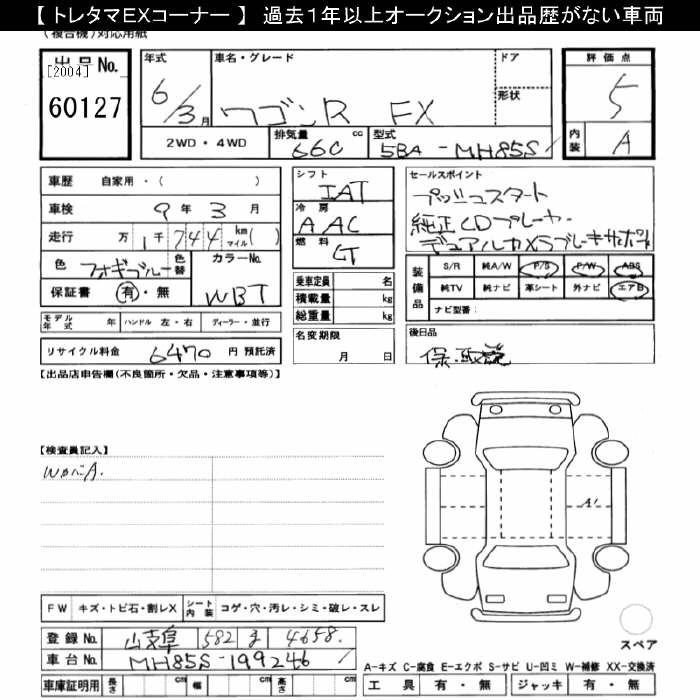 【 トレタマEXコーナー 】 過去１年以上オークション出品歴がない車両
(複合機)対応用紙
出品No.
[2004]
60127
年式
6/3月
車名・グレード
ワゴンR FX
ドア
形状
2WD・4WD
排気量 660 cc
型式 5BA-MH85S
評価点
5
内装 A
車歴 自家用・( )
車検 9年3月
走行 万1千744 km マイル( )
色 フォギブルー 色替
カラーNo. WBT
保証書 有・無
モデル年式 年 ハンドル 左・右 ディーラー・並行
リサイクル料金 6470 円 預託済
シフト IAT
冷房 AAC
燃料
乗車定員 名
積載量 kg
総重量 kg
名変期限
月 日
セールスポイント
プッシュスタート
純正CDプレーヤー
デュアルカメラブレーキサポート
装備品
S/R 純A/W P/S P/W ABS
純TV 純ナビ 革シート 外ナビ エアB
ナビ型番:
後日品
保・取説
【出品店申告欄(不良箇所・欠品・注意事項等)】
【検査員記入】
A1
FW キズ・トビ石・割レX シート内装 コゲ・穴・汚レ・シミ・破レ・スレ
登録No. 582 4658
車台No. MH85S-199246
車庫証明用 長さ cm 幅 cm 高さ cm
スペア
A-キズ C-腐食 E-エクボ S-サビ U-凹ミ W-補修 XX-交換済
工具 有・無 ジャッキ 有・無